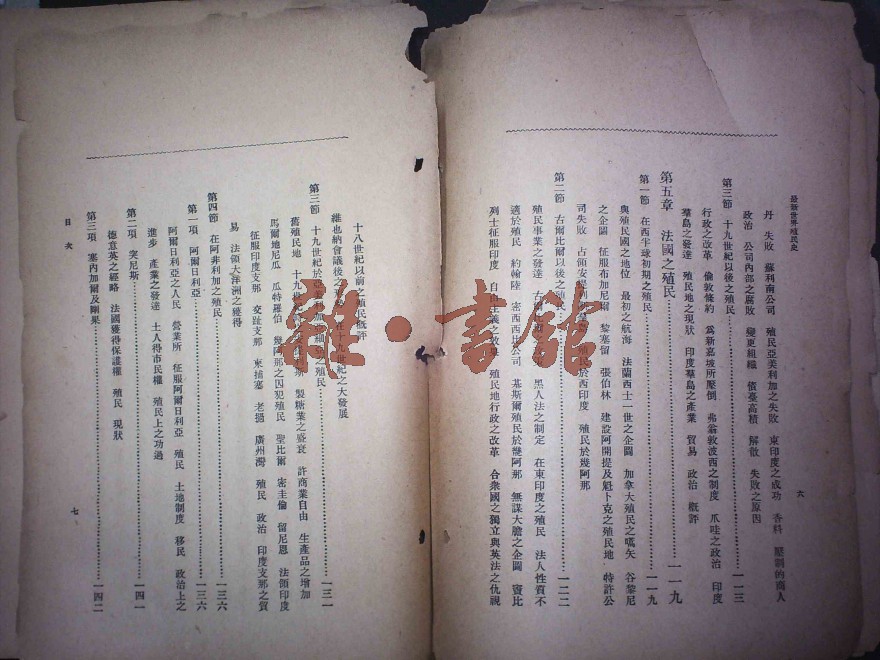 最新世界殖民史
六
丹 失敗 蘇利南公司 殖民亞美利加之失敗 東印度之成功 香料 壓制的商人
政治 公司內部之腐敗 變更組織 債臺高積 解散 失敗之原因
第三節 十九世紀以後之殖民 一一三
行政之改革 倫敦條約 為新嘉坡所壓倒 弗翁敦波西之制度 爪哇之政治 印度
羣島之發達 殖民地之現狀 印度羣島之產業 貿易 政治 概評
第五章 法國之殖民 一一九
第一節 在西半球初期之殖民 一一九
與殖民國之地位 最初之航海 法蘭西士一世之企圖 加拿大殖民之嚆矢 谷黎尼
之企圖 征服布加尼爾 黎塞留 張伯林 建設阿開提及魁卜克之殖民地 特許公
司失敗 占領安 殖民於西印度 殖民於幾阿那
第二節 古爾比爾以後之殖民 一二二
殖民事業之發達 古 黑人法之制定 在東印度之殖民 法人性質不
適於殖民 約翰陸 密西西 公司 基斯爾殖民於 阿那 無謀大膽之企圖 賓比
列士征服印度 自由主義之效果 殖民地行政之改革 合衆國之獨立與英法之仇視
十八世紀以前之殖民概評
維也納會議後之 在十九世紀之大發展
第三節 十九世紀於亞 之殖民 一三一
舊殖民地 十九世紀 利斯 製糖業之盛衰 許商業自由 生產品之增加
馬爾地尼瓜 瓜特羅伯 幾阿那之囚犯殖民 聖比爾 密圭倫 留尼恩 法領印度
征服印度支那 交趾支那 柬埔塞 老撾 廣州灣 殖民 政治 印度支那之貿
易 法領大洋洲之獲得
第四節 在阿非利加之殖民 一三六
第一項 阿爾日利亞 一三六
阿爾日利亞之人民 營業所 征服阿爾日利亞 殖民 土地制度 移民 政治上之
進步 產業之發達 土人得市民權 殖民上之功過
第二項 突尼斯 一四一
德意英之經略 法國獲得保護權 殖民 現狀
第三項 塞內加爾及剛果 一四二
目次
七
雜·書館